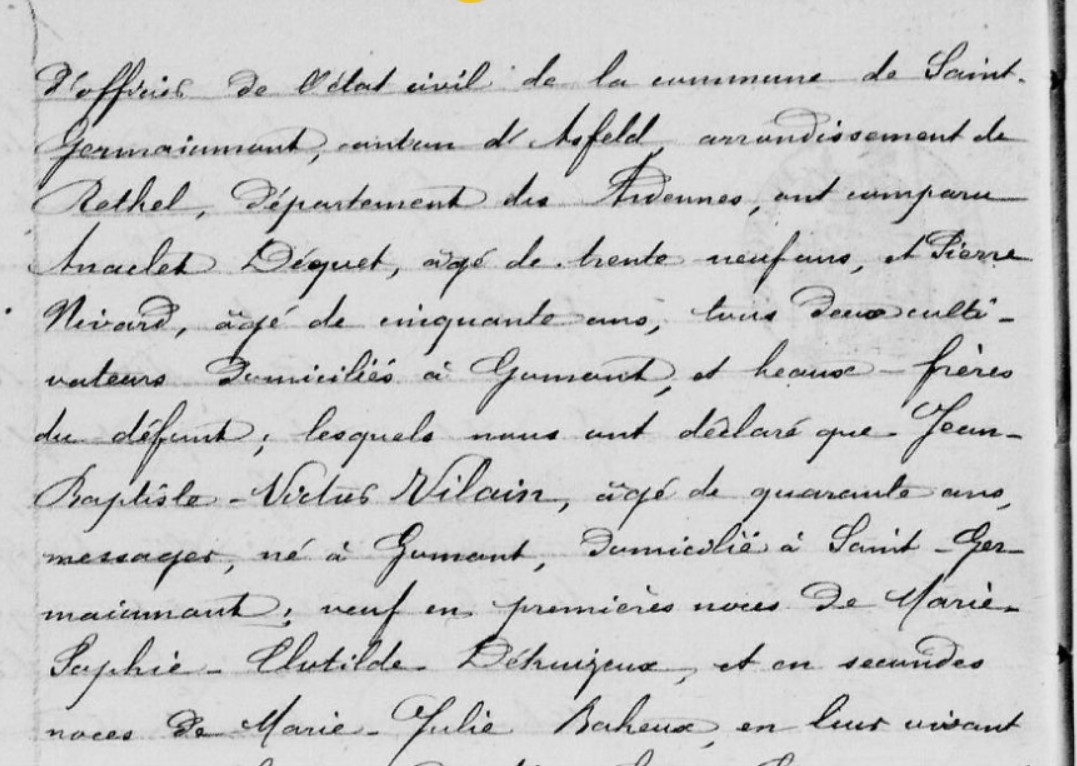 d'officier de l'état civil de la commune de Saint-
Germainmont, canton d'Asfeld, arrondissement de
Rethel, département des Ardennes, ont comparu
Anaclet Déquet, âgé de trente neuf ans, et Pierre
Nivard, âgé de cinquante ans, tous deux culti-
vateurs domiciliés à Gomont, et beaux-frères
du défunt; lesquels nous ont déclaré que Jean-
Baptiste-Victor Vilain, âgé de quarante ans,
messager, né à Gomont, domicilié à Saint-Ger-
mainmont; veuf en premières noces de Marie-
Sophie-Clotilde Détruizeux, et en secondes
noces de Marie-Julie Baheux, en leur vivant